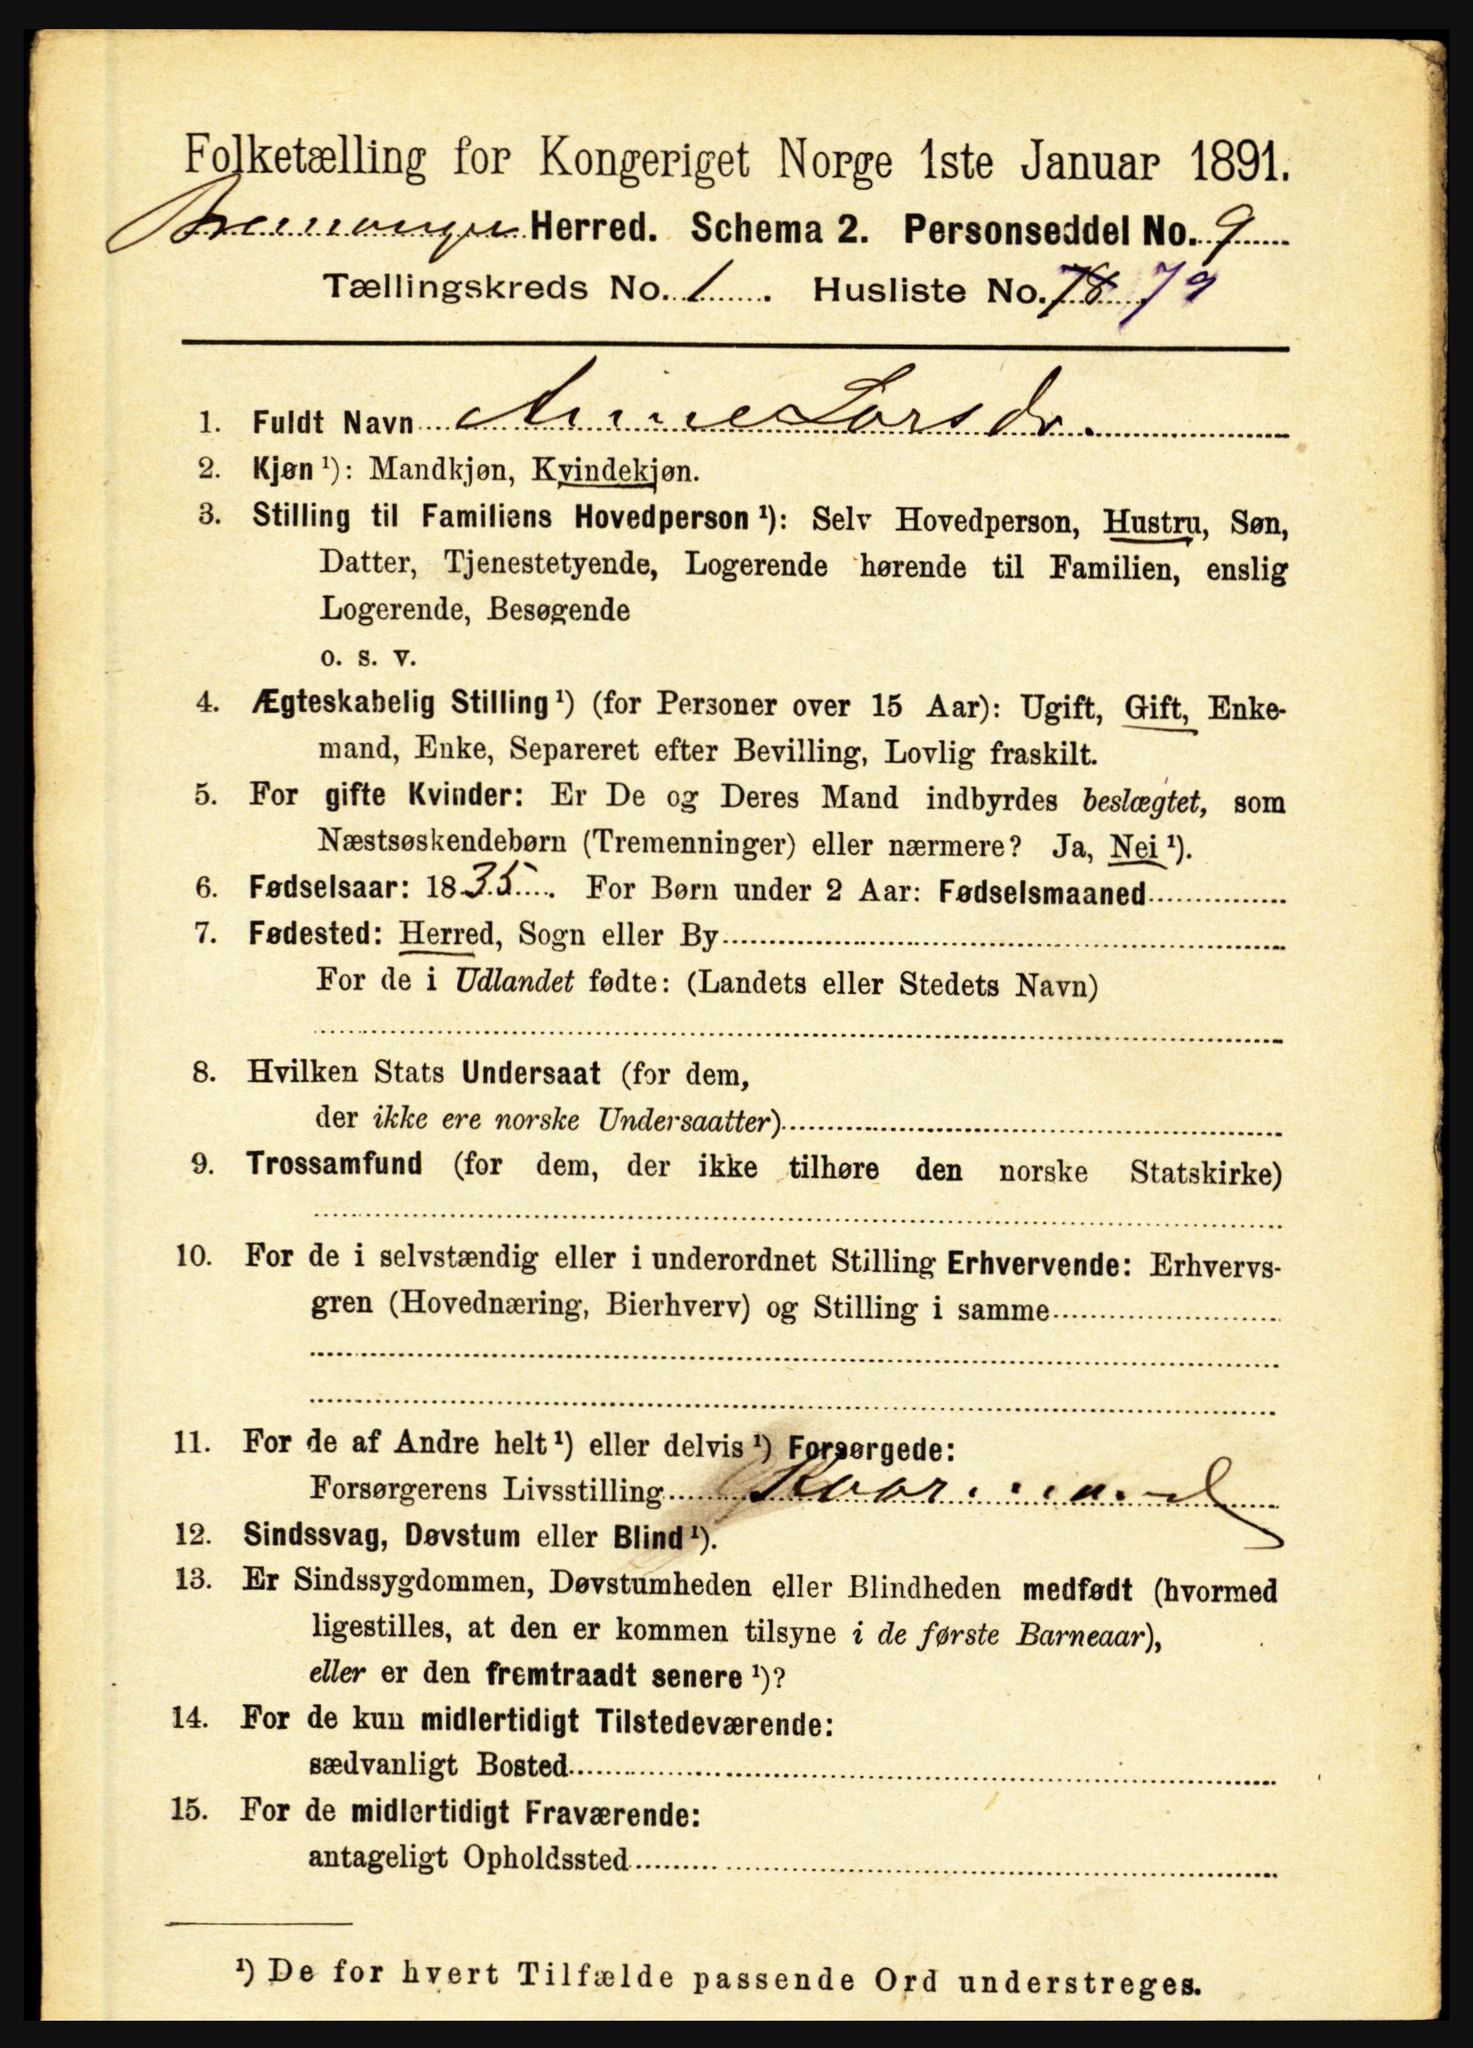 Folketælling for Kongeriget Norge 1ste Januar 1891.
Bremanger Herred. Schema 2. Personseddel No. 9
Tællingskreds No. 1. Husliste No. 78 79
1. Fuldt Navn Anne Larsdr.
2. Kjøn ¹): Mandkjøn, Kvindekjøn.
3. Stilling til Familiens Hovedperson ¹): Selv Hovedperson, Hustru, Søn,
Datter, Tjenestetyende, Logerende hørende til Familien, enslig
Logerende, Besøgende
o. s. v.
4. Ægteskabelig Stilling ¹) (for Personer over 15 Aar): Ugift, Gift, Enke-
mand, Enke, Separeret efter Bevilling, Lovlig fraskilt.
5. For gifte Kvinder: Er De og Deres Mand indbyrdes beslægtet, som
Næstsøskendebørn (Tremenninger) eller nærmere? Ja, Nei ¹).
6. Fødselsaar: 1835. For Børn under 2 Aar: Fødselsmaaned
7. Fødested: Herred, Sogn eller By
For de i Udlandet fødte: (Landets eller Stedets Navn)
8. Hvilken Stats Undersaat (for dem,
der ikke ere norske Undersaatter)
9. Trossamfund (for dem, der ikke tilhøre den norske Statskirke)
10. For de i selvstændig eller i underordnet Stilling Erhvervende: Erhvervs-
gren (Hovednæring, Bierhverv) og Stilling i samme
11. For de af Andre helt ¹) eller delvis ¹) Forsørgede:
Forsørgerens Livsstilling
12. Sindssvag, Døvstum eller Blind ¹).
13. Er Sindssygdommen, Døvstumheden eller Blindheden medfødt (hvormed
ligestilles, at den er kommen tilsyne i de første Barneaar),
eller er den fremtraadt senere ¹)?
14. For de kun midlertidigt Tilstedeværende:
sædvanligt Bosted
15. For de midlertidigt Fraværende:
antageligt Opholdssted
¹) De for hvert Tilfælde passende Ord understreges.